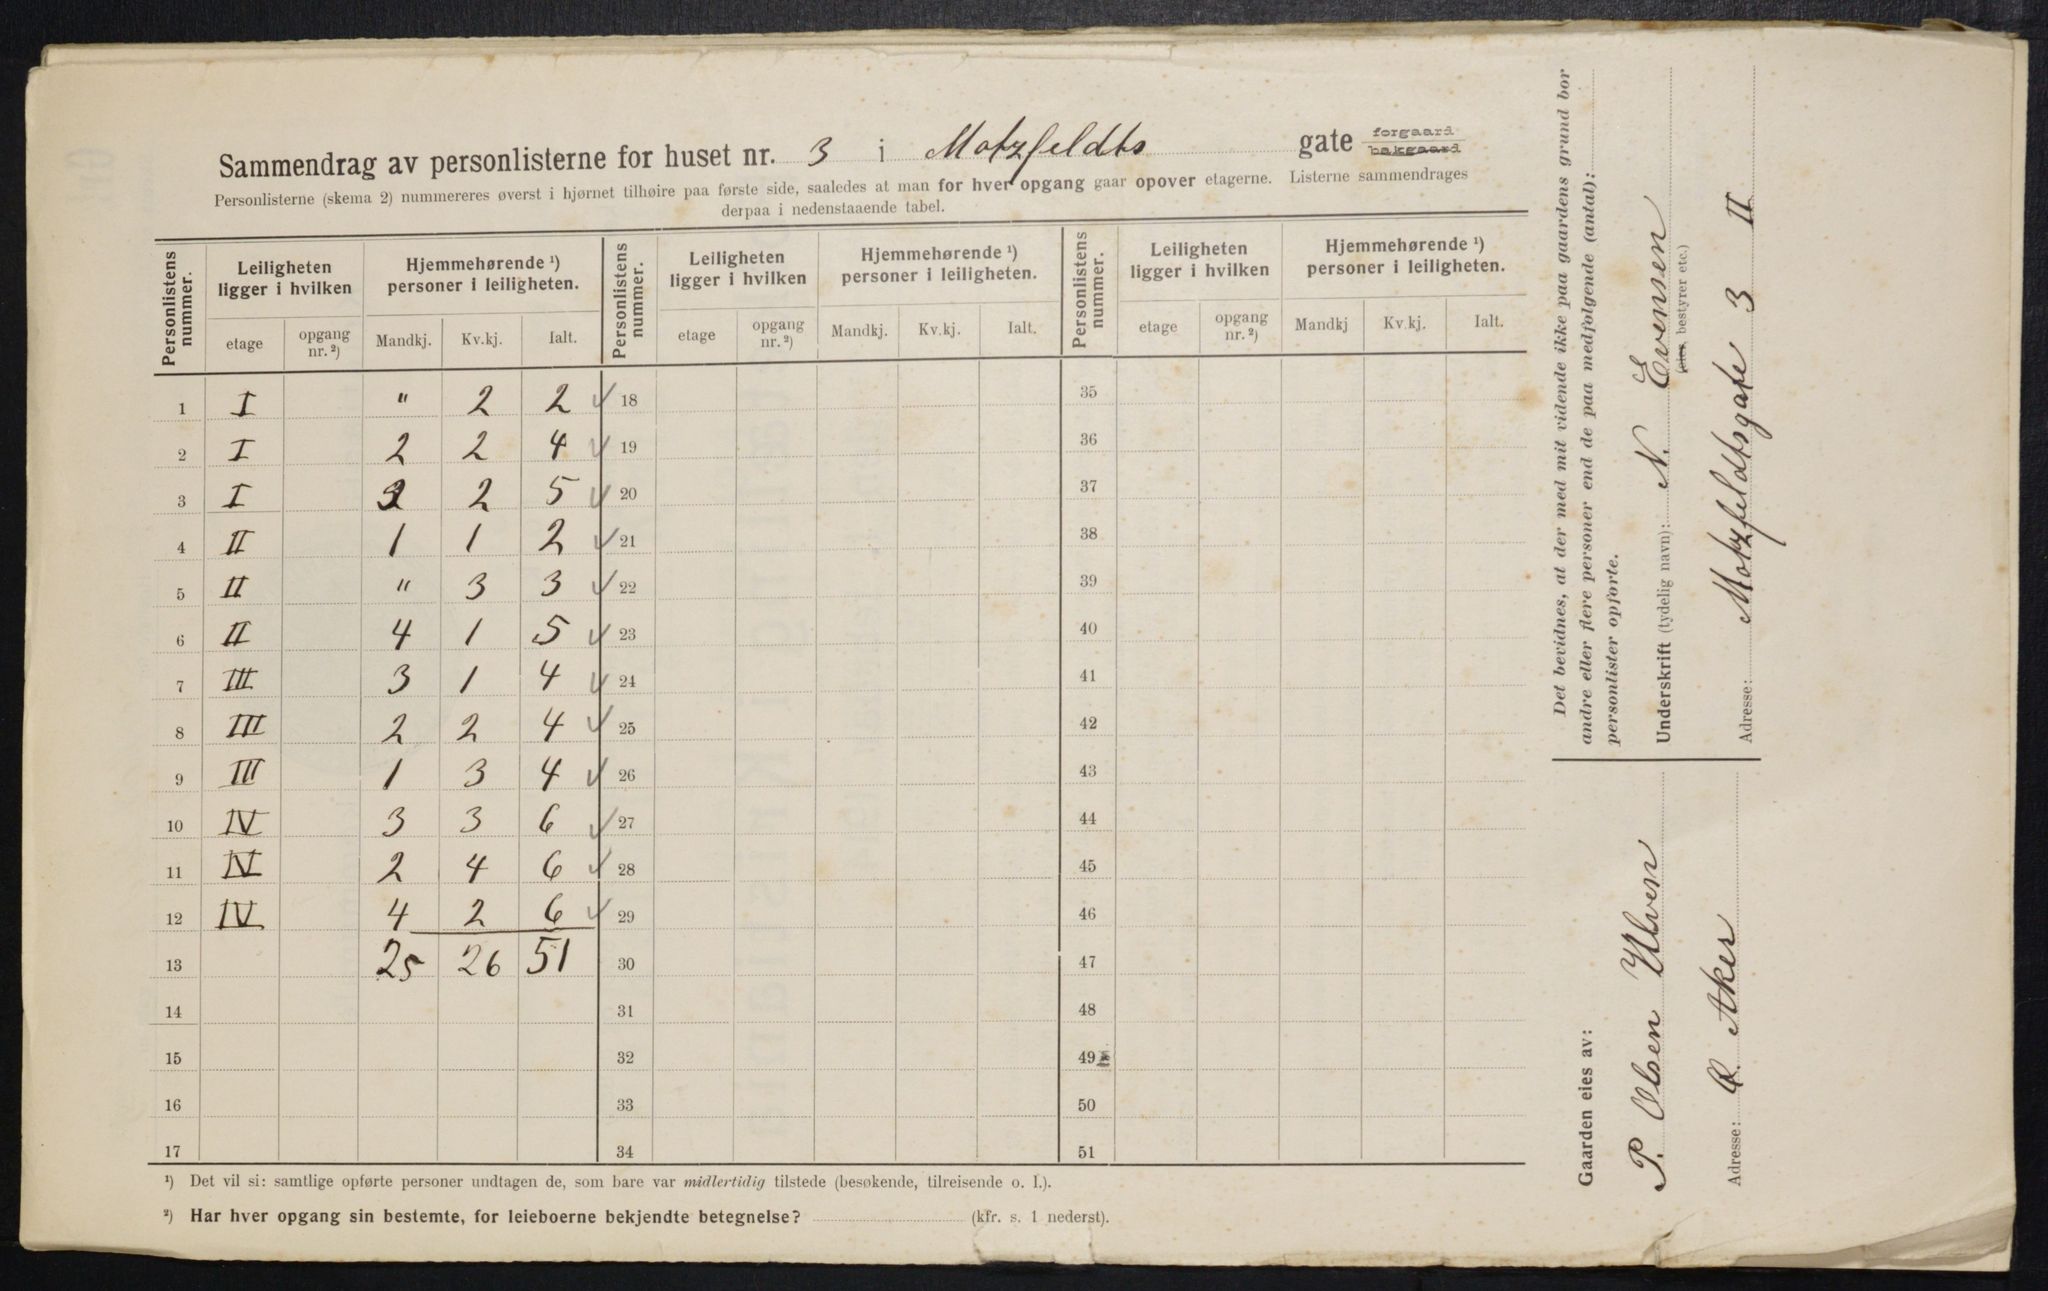 Sammendrag av personlisterne for huset nr. 3 i Motzfeldts gate forgaard bakgaard
Personlisterne (skema 2) nummereres øverst i hjørnet tilhøire paa første side, saaledes at man for hver opgang gaar opover etagerne. Listerne sammendrages
derpaa i nedenstaaende tabel.
Personlistens nummer. Leiligheten ligger i hvilken Hjemmehørende ¹) personer i leiligheten. Personlistens nummer. Leiligheten ligger i hvilken Hjemmehørende ¹) personer i leiligheten. Personlistens nummer. Leiligheten ligger i hvilken Hjemmehørende ¹) personer i leiligheten.
etage opgang nr. ²) Mandkj. Kv.kj. Ialt. etage opgang nr. ²) Mandkj. Kv.kj. Ialt. etage opgang nr. ²) Mandkj Kv.kj. Ialt.
1 I " 2 2 ✓ 18 35
2 I 2 2 4 ✓ 19 36
3 I 3 2 5 ✓ 20 37
4 II 1 1 2 ✓ 21 38
5 II " 3 3 ✓ 22 39
6 II 4 1 5 ✓ 23 40
7 III 3 1 4 ✓ 24 41
8 III 2 2 4 ✓ 25 42
9 III 1 3 4 ✓ 26 43
10 IV 3 3 6 ✓ 27 44
11 IV 2 4 6 ✓ 28 45
12 IV 4 2 6 ✓ 29 46
13 25 26 51 30 47
14 31 48
15 32 49
16 33 50
17 34 51
¹) Det vil si: samtlige opførte personer undtagen de, som bare var midlertidig tilstede (besøkende, tilreisende o. l.).
²) Har hver opgang sin bestemte, for leieboerne bekjendte betegnelse? (kfr. s. 1 nederst).
Det bevidnes, at der med mit vidende ikke paa gaardens grund bor
andre eller flere personer end de paa medfølgende (antal):
personlister opførte.
Underskrift (tydelig navn): N. Evensen
(eier, bestyrer etc.)
Adresse: Motzfeldtsgate 3 II
Gaarden eies av:
P. Olsen Ulven
Adresse: Ø. Aker